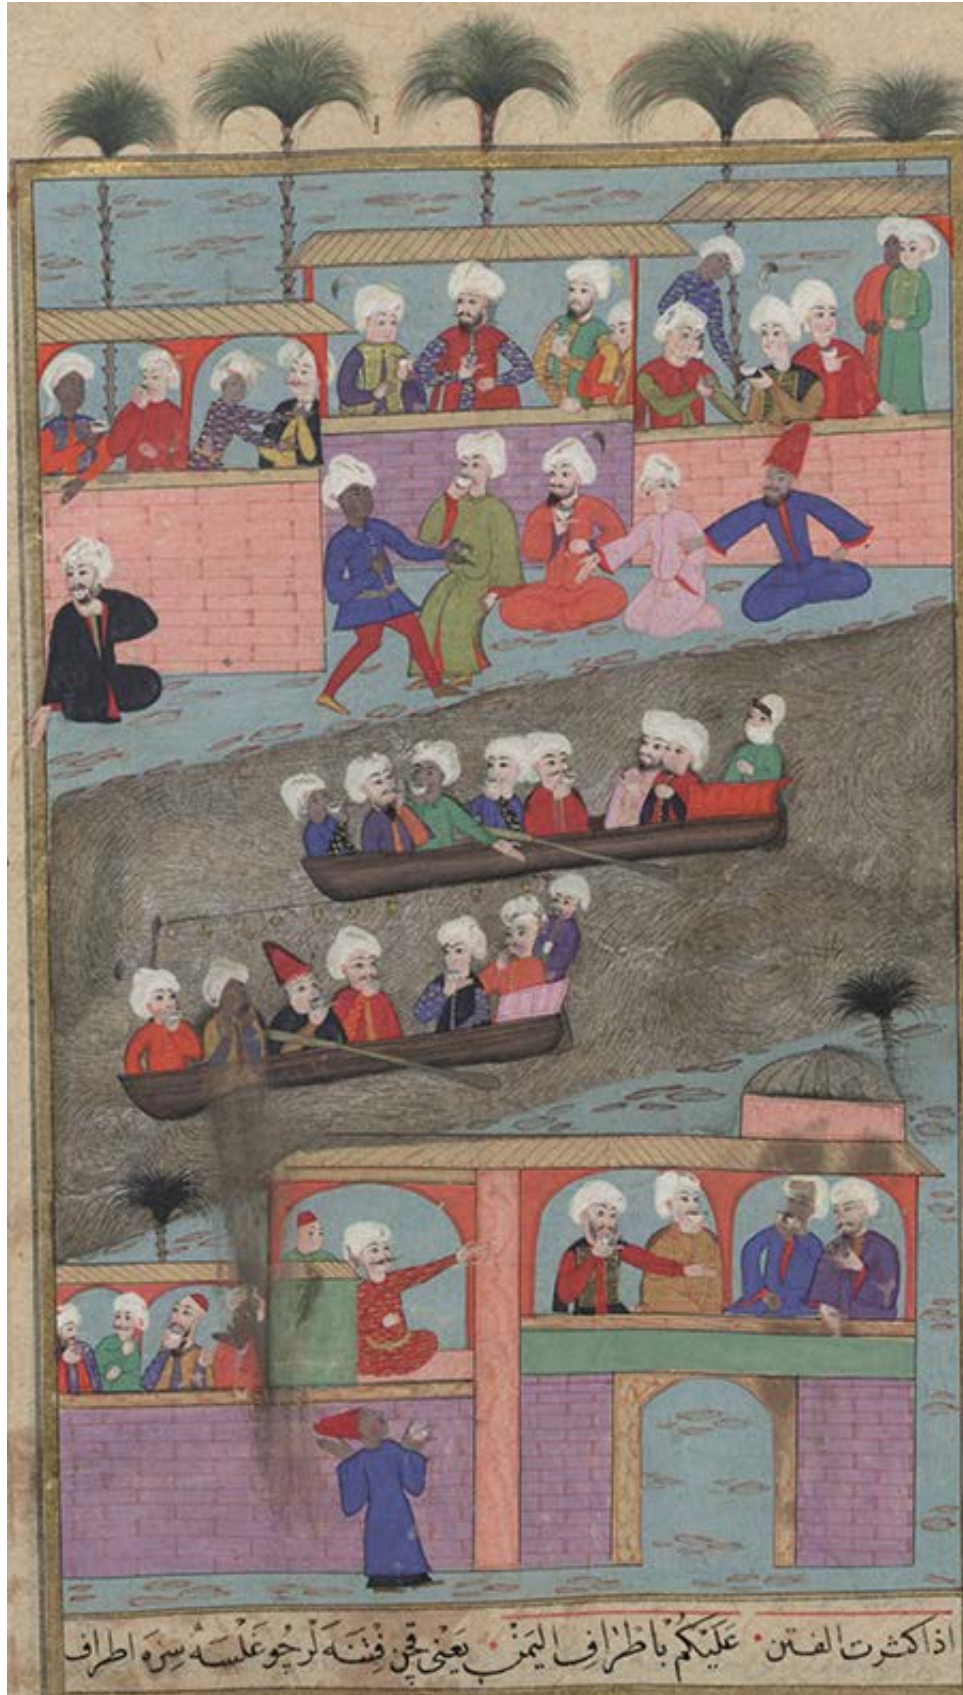 اذا كثرت الفتن عَلَيْكُمْ بِاَطْرَافِ اليَمَنِ يَعْنِى قچن فِتْنَه لَر چُوغَلْسَه سِزَه اطراف